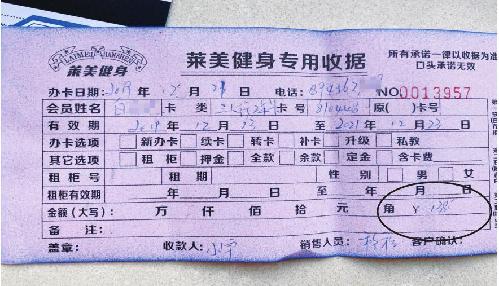 LAIMEI JIANSHEN
莱美健身
莱美健身专用收据
所有承诺一律以收据为准
口头承诺无效
办卡日期 2019年12月21日 电话: NO0013957
会员姓名 白 卡类 卡号 原( )卡号
有效期 2019年12月23日至2021年12月23日
办卡选项 新办卡 续卡 转卡 补卡 升级 私教
其它选项 租柜 押金 全款 余款 定金 含卡费
租柜号 租期 性别 男 女
租柜有效期 年 月 日至 年 月 日
金额(大写): 万 仟 佰 拾 元 角 ¥
备注:
盖章: 收款人: 销售人员: 客户确认: